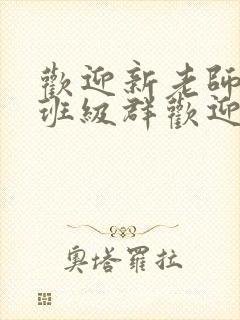 歡迎新老師
班級群歡迎
奧塔羅拉